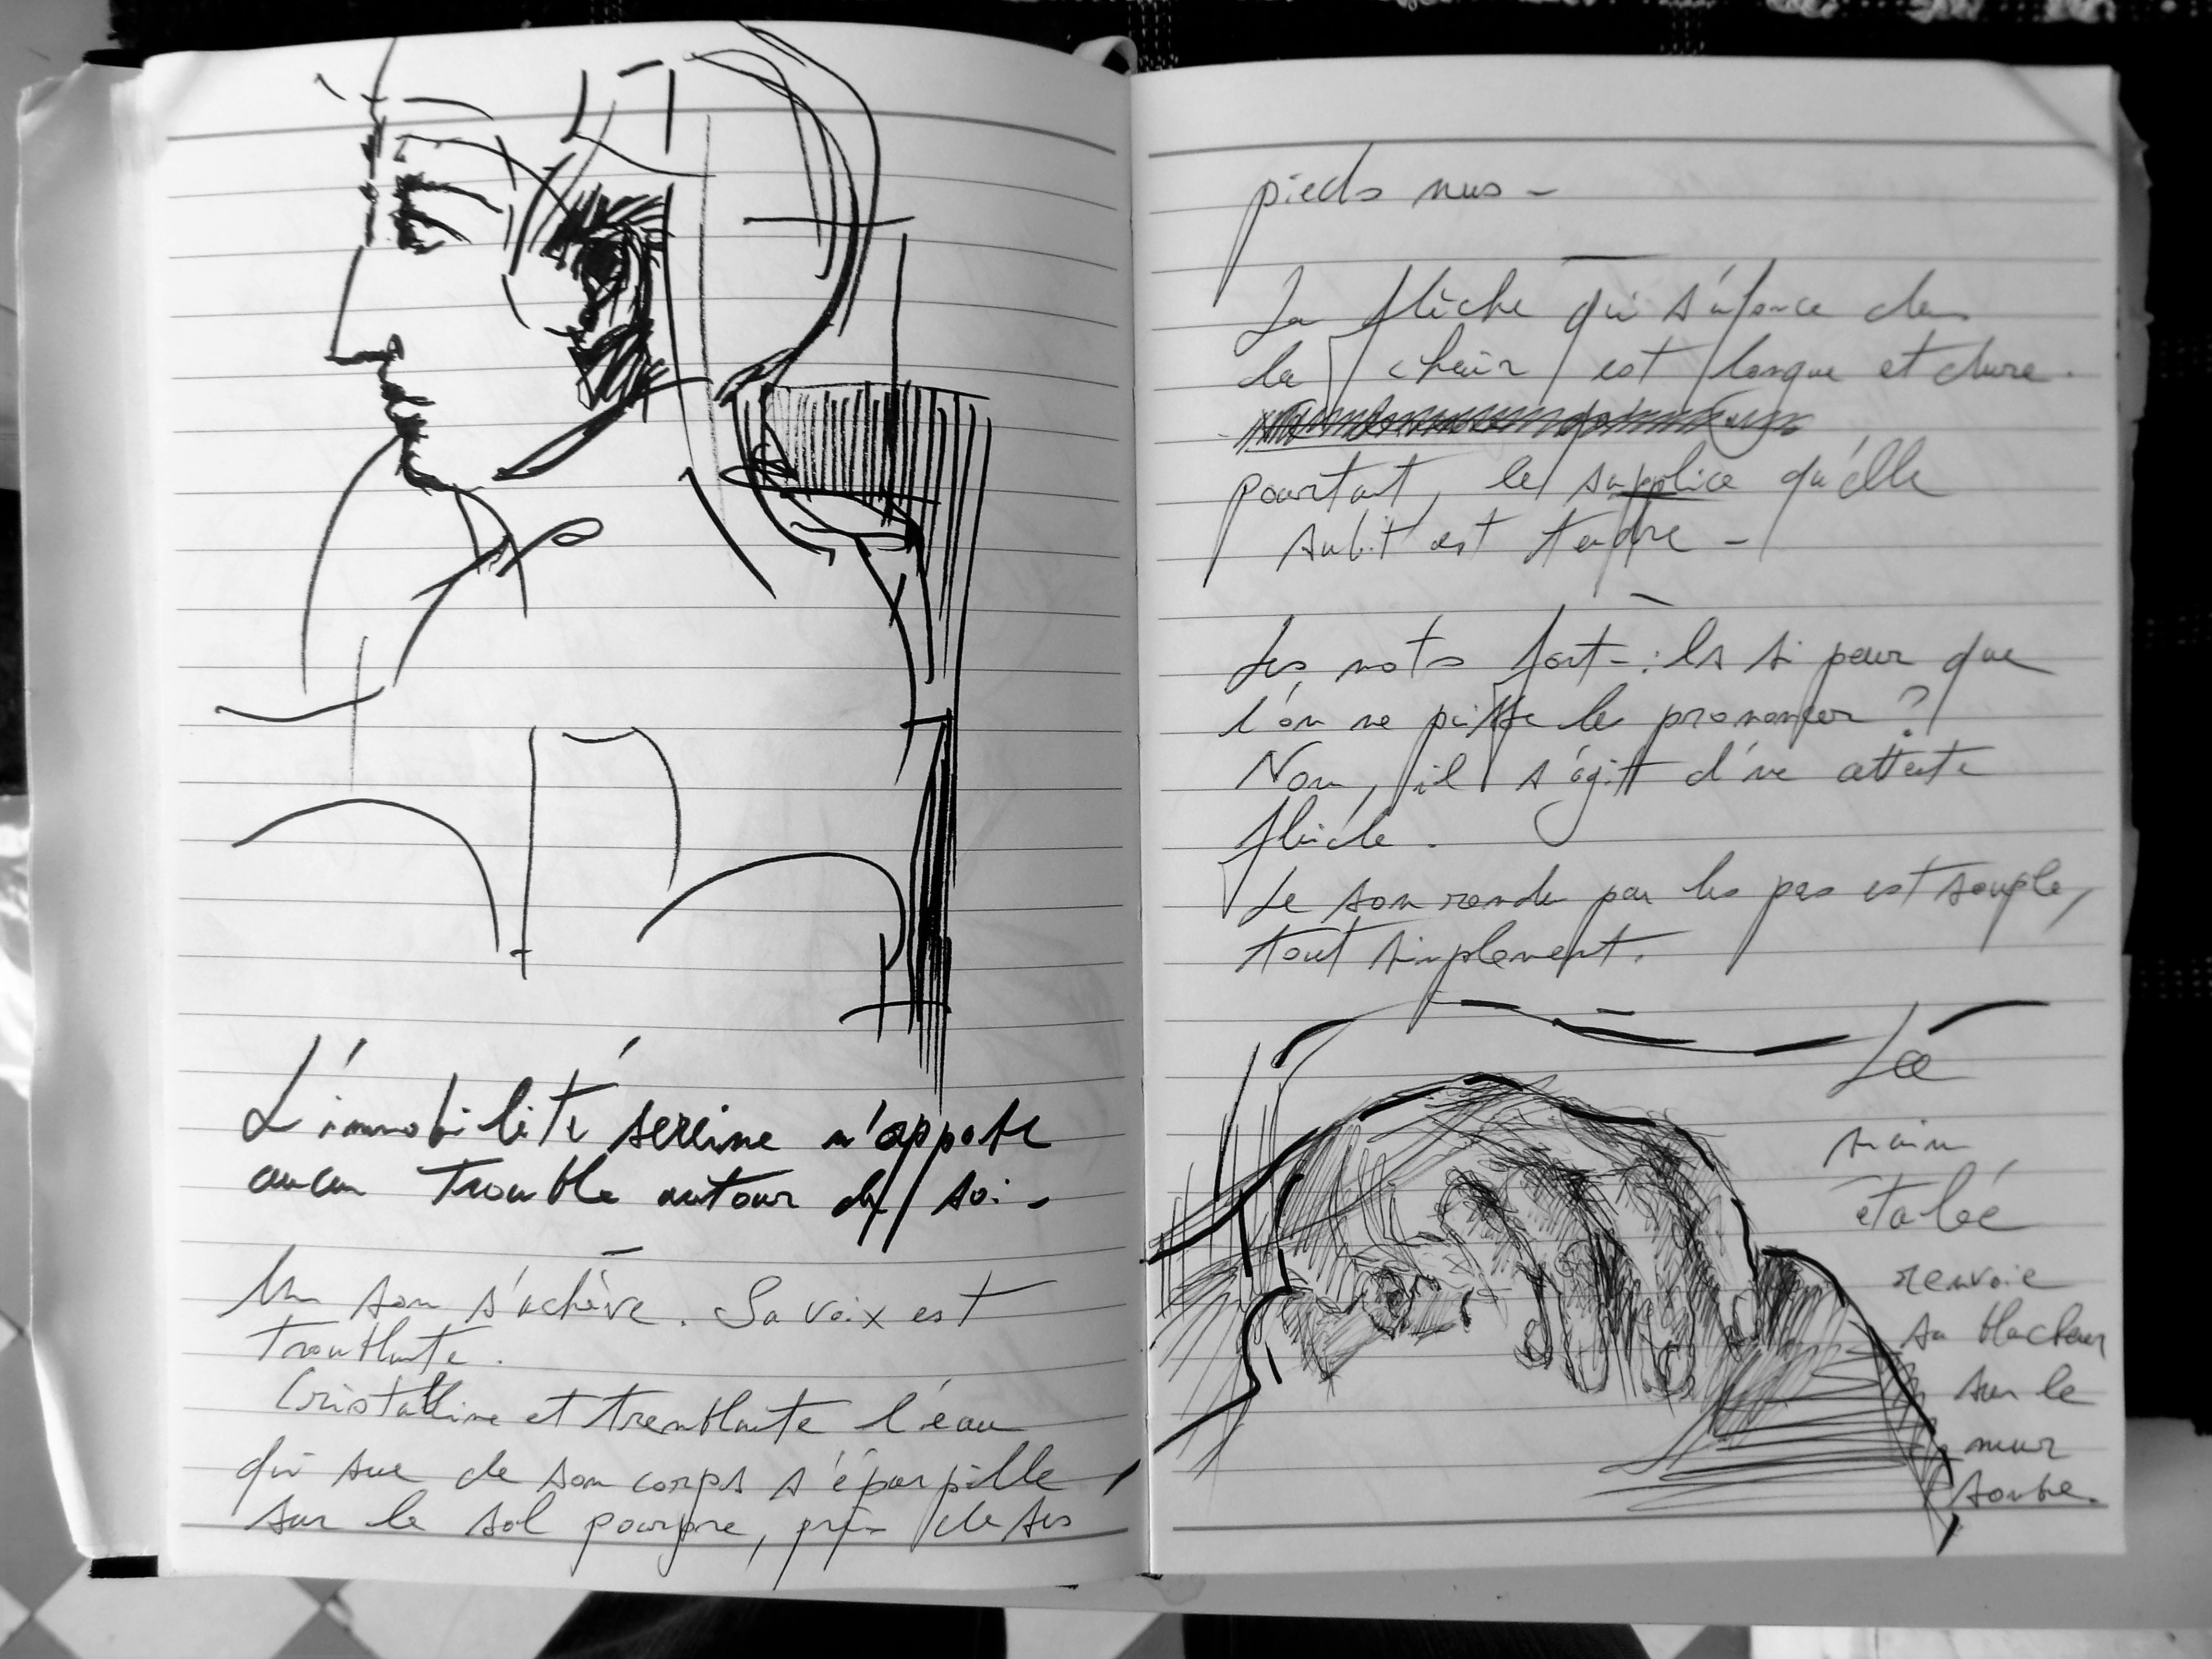 L'immobilité sereine n'appose
aucun trouble autour de soi -
Un son s'achève. Sa voix est
troublante.
Cristalline et tremblante l'eau
qui sue de son corps s'éparpille,
sur le sol pourpre, près de ses
pieds nus -
La flèche qui s'enfonce dans
la chair est longue et dure.
pourtant, le supplice qu'elle
subit est tendre -
Les mots sont-ils si peur que
l'on ne puisse le prononcer ?
Non, il s'agit d'une attente
fluide.
Le son rendu par les pas est souple,
tout simplement.
La
main
étalée
renvoie
sa blancheur
sur le
mur
sombre.